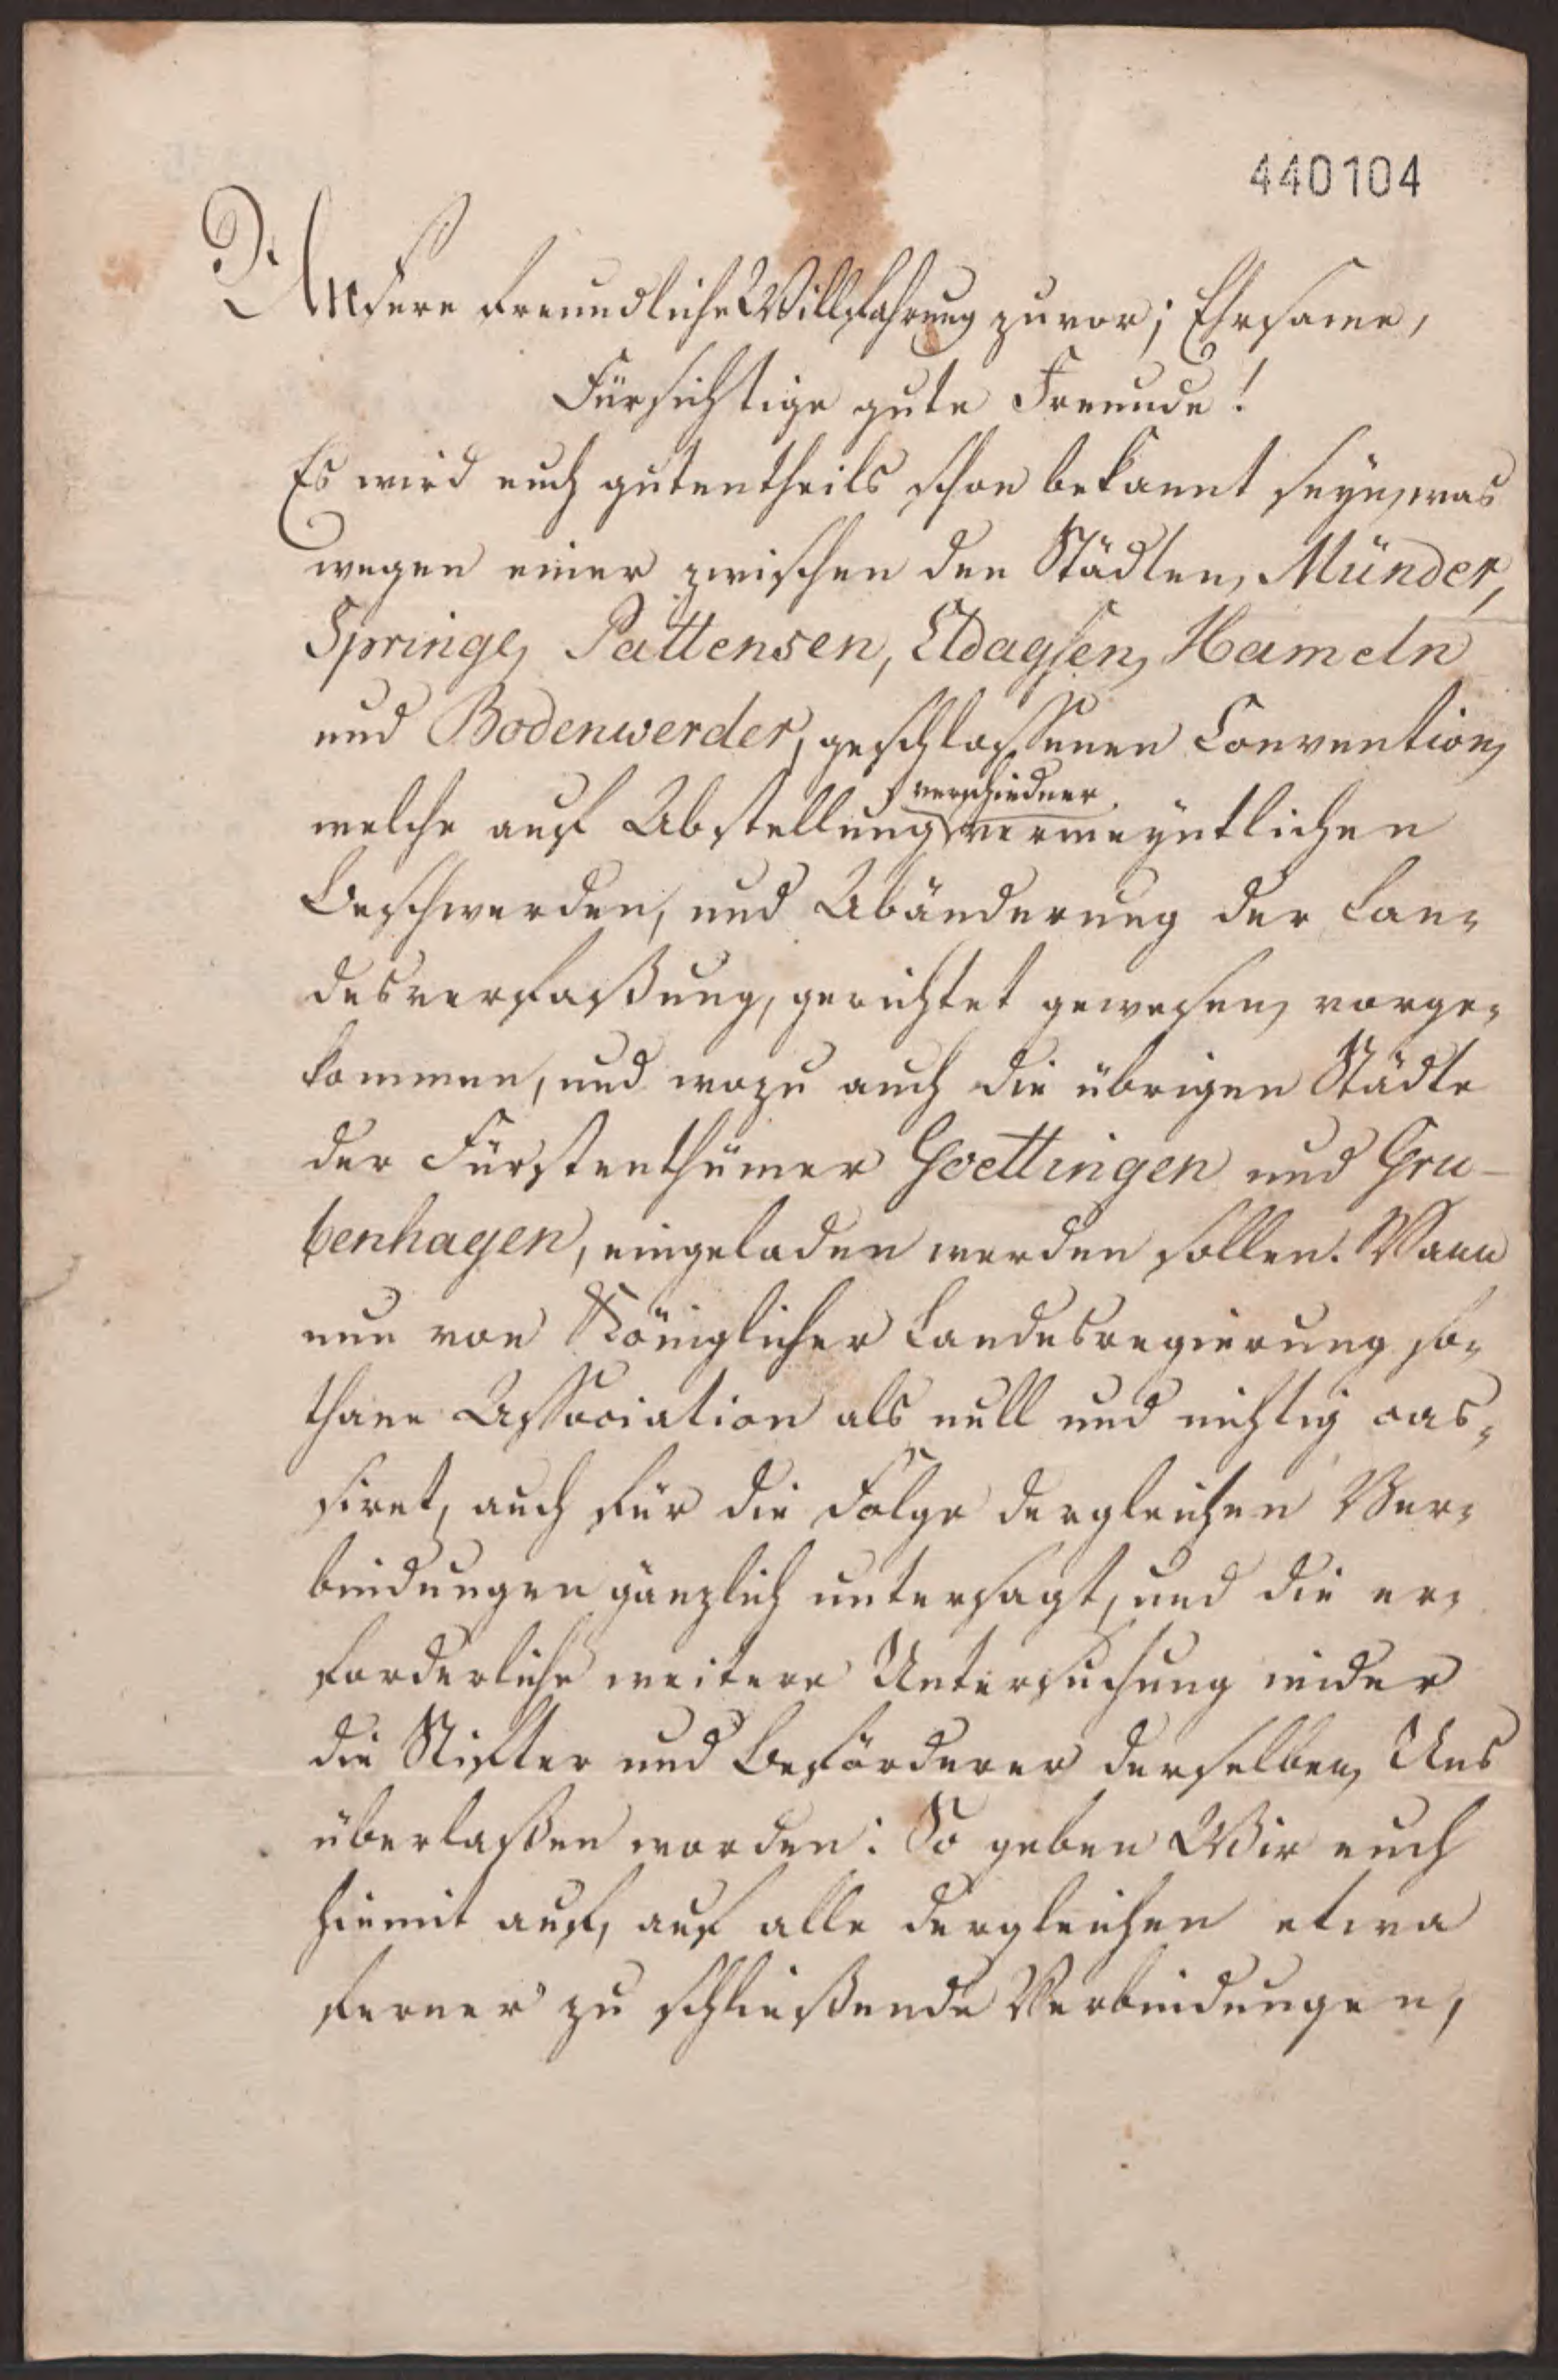 440104
Unsere freundliche Willfahrung zuvor; Ehrsame,
Fürsichtige gute Freunde!
Es wird euch gutentheils schon bekannt seyn, was
wegen einer zwischen den Städten, Münder,
Springe, Pattensen, Eldagsen, Hameln
und Bodenwerder, geschlossenen Convention,
verschiedner
welche auf Abstellung vermeyntlichen
Beschwerden, und Abänderung der Lan-
desverfaßung, gerichtet gewesen, vorge-
kommen, und wozu auch die übrigen Städte
der Fürstenthümer Goettingen und Gru-
benhagen, eingeladen werden sollen. Wann
nun von Königlicher Landesregierung so-
thane Association als null und nichtig cas-
siret, auch für die Folge dergleichen Ver-
bindungen gänzlich untersagt, und die er-
forderliche weitere Untersuchung wider
die Stifter und Beförderer derselben, Uns
überlaßen worden: So geben Wir euch
hiemit auf, auf alle dergleichen etwa
ferner zu schließende Verbindungen,